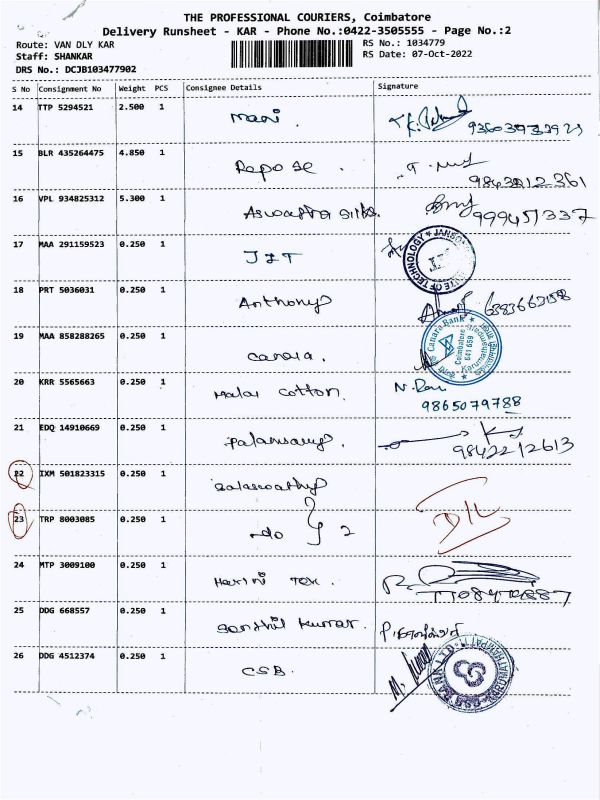 THE PROFESSIONAL COURIERS, Coimbatore
Delivery Runsheet - KAR - Phone No.:0422-3505555 - Page No.:2
Route: VAN DLY KAR
Staff: SHANKAR
DRS No.: DCJB103477902
RS No.: 1034779
RS Date: 07-Oct-2022
S No Consignment No Weight PCS Consignee Details Signature
14 TTP 5294521 2.500 1 Mani.
15 BLR 435264475 4.850 1 Repose.
16 VPL 934825312 5.300 1
17 MAA 291159523 0.250 1 JIT
18 PRT 5036031 0.250 1 Anthony
19 MAA 858288265 0.250 1 canara. Canara Bank Coimbatore 641 659
20 KRR 5565663 0.250 1 Malar Cotton. 9865079788
21 EDQ 14910669 0.250 1 9842212613
22 IXM 501823315 0.250 1
23 TRP 8003085 0.250 1 -do 2
24 MTP 3009100 0.250 1 Harini Tex.
25 DDG 668557 0.250 1 Senthil Kumar.
26 DDG 4512374 0.250 1 CSB.